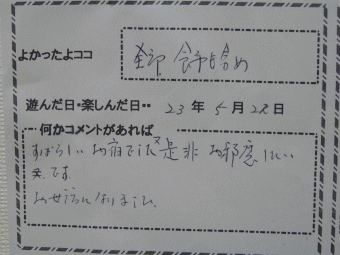 よかったよココ
全部 含め
遊んだ日・楽しんだ日・・ 23 年 5 月 22 日
何かコメントがあれば
すばらしいお宿でした又是非お邪魔したい
です。
お世話になりました。